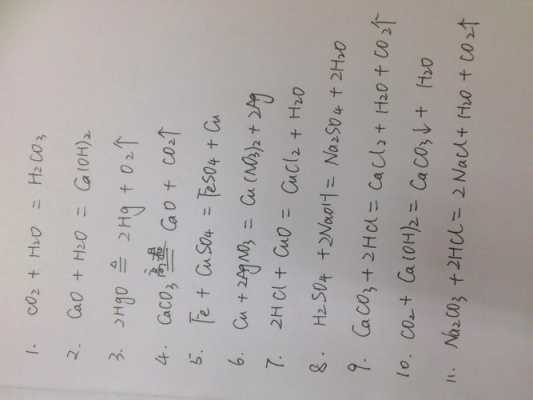 1. CO2 + H2O = H2CO3
2. CaO + H2O = Ca(OH)2
3. 2HgO ≜ 2Hg + O2↑
4. CaCO3 高温 CaO + CO2↑
5. Fe + CuSO4 = FeSO4 + Cu
6. Cu + 2AgNO3 = Cu(NO3)2 + 2Ag
7. 2HCl + CuO = CuCl2 + H2O
8. H2SO4 + 2NaOH = Na2SO4 + 2H2O
9. CaCO3 + 2HCl = CaCl2 + H2O + CO2↑
10. CO2 + Ca(OH)2 = CaCO3↓ + H2O
11. Na2CO3 + 2HCl = 2NaCl + H2O + CO2↑